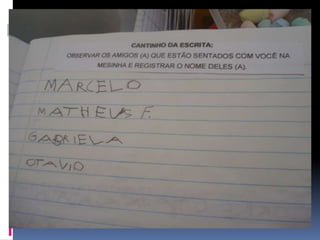 CANTINHO DA ESCRITA:
OBSERVAR OS AMIGOS (A) QUE ESTÃO SENTADOS COM VOCÊ NA
MESINHA E REGISTRAR O NOME DELES (A).
MARCELO
MATHEUS F.
GABRIELA
OTAVIO